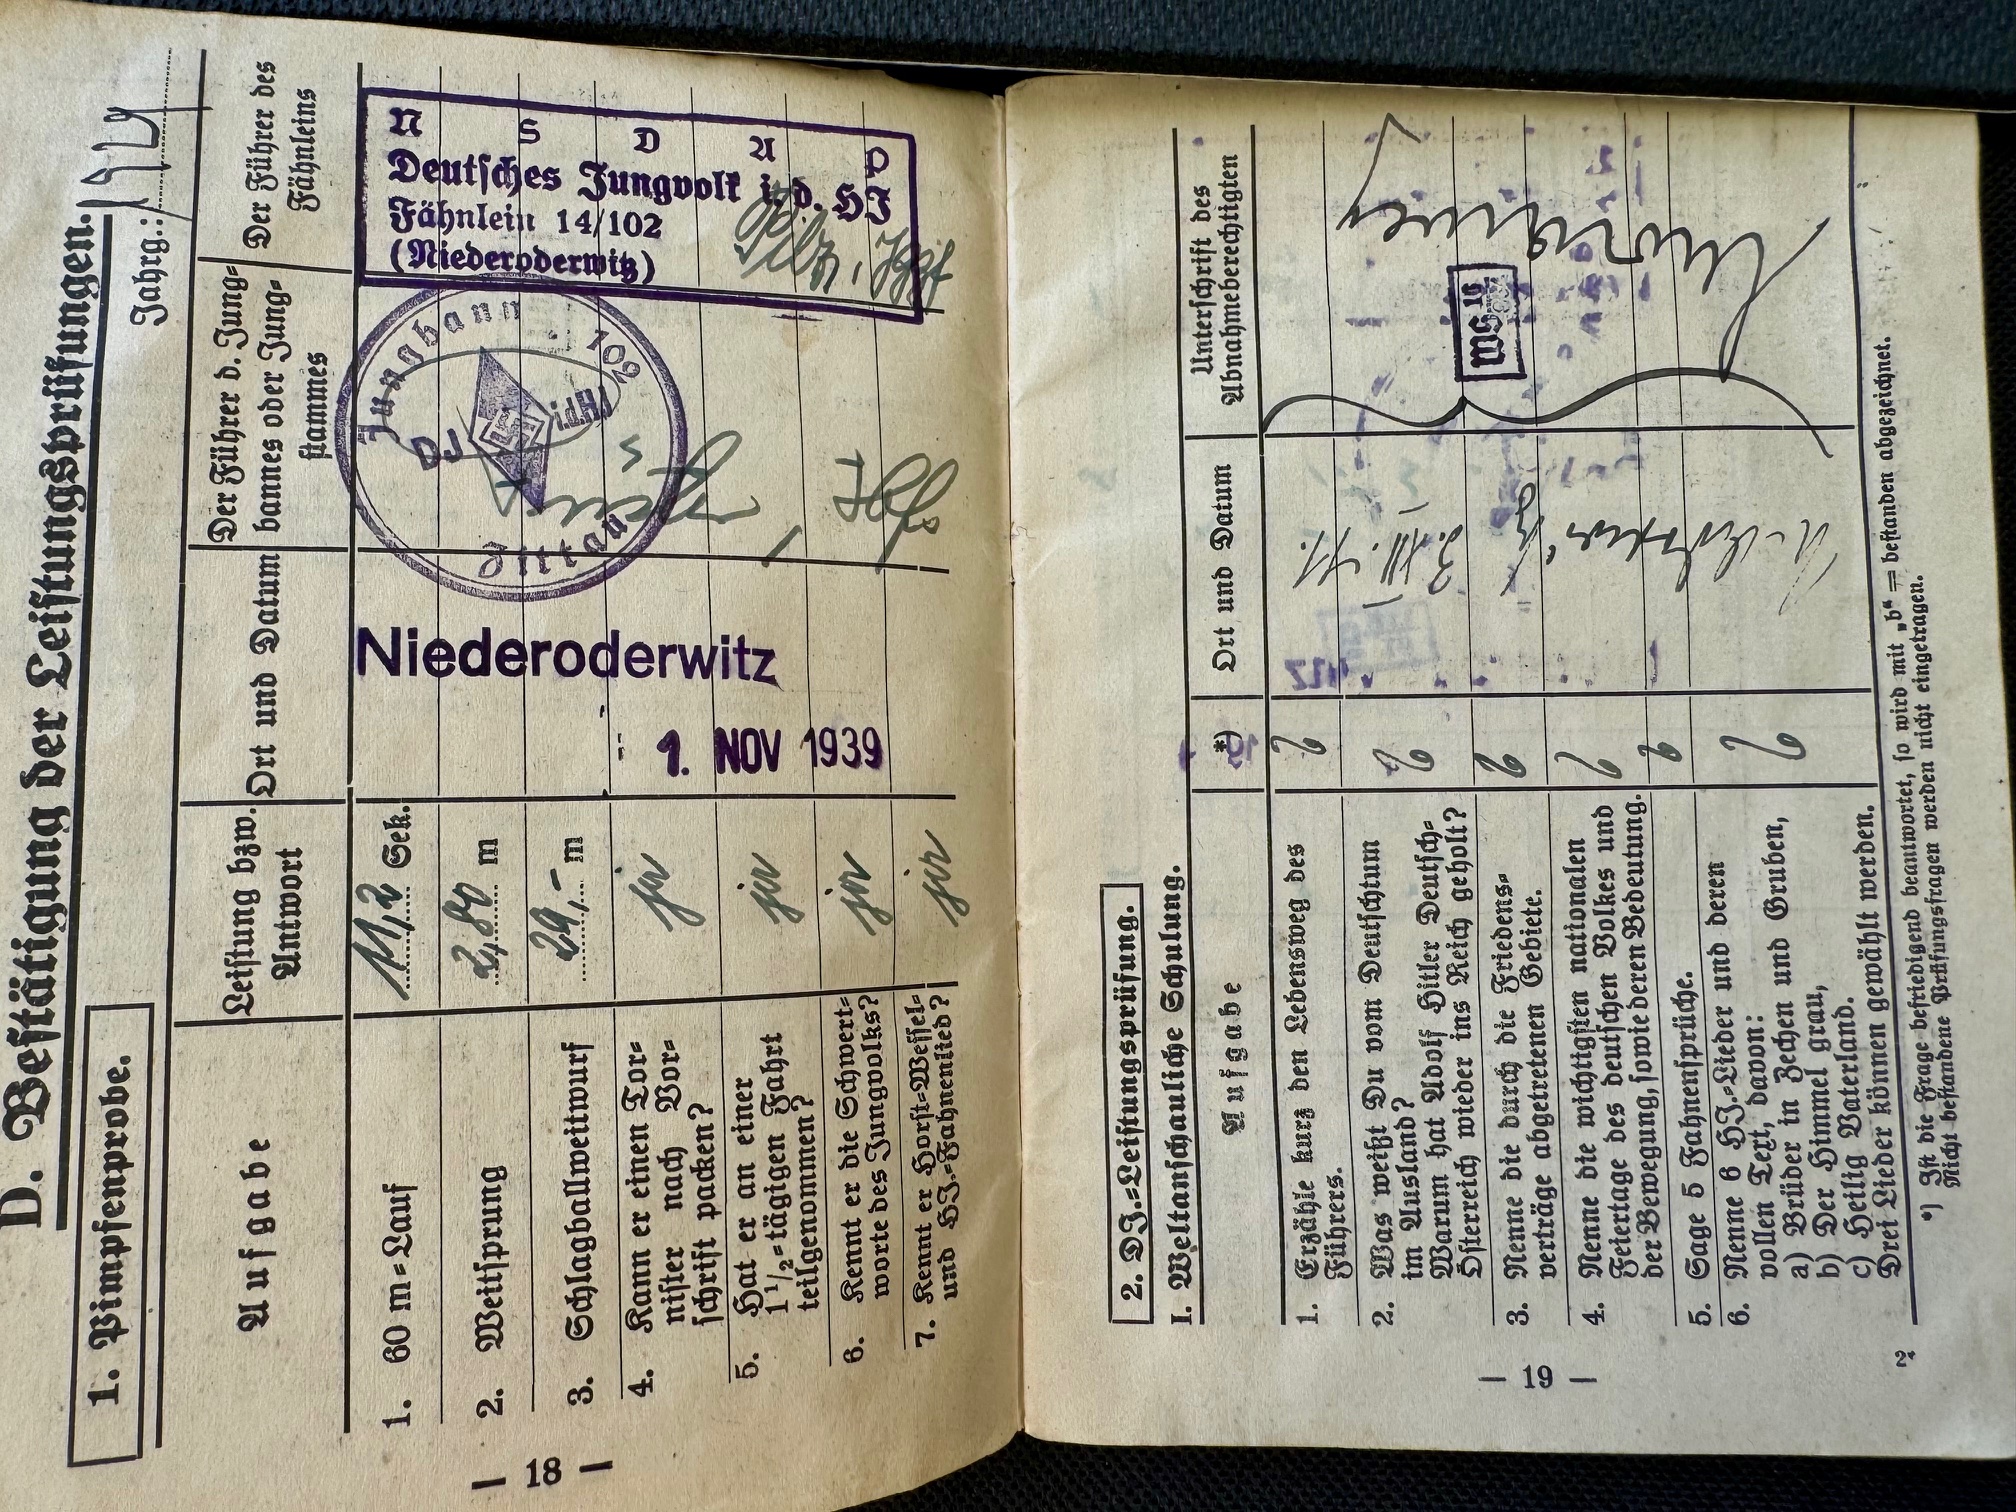 D. Bestätigung der Leistungsprüfungen.
1. Pimpfenprobe.
Jahrg.:
Aufgabe
Leistung bzw. Antwort
Ort und Datum
Der Führer d. Jung=
bannes oder Jung=
stammes
Der Führer des
Fähnleins
1. 60 m=Lauf
11,2 Sek.
2. Weitsprung
2,80 m
3. Schlagballweitwurf
29,- m
4. Kann er einen Tor=
nister nach Vor=
schrift packen?
ja
5. Hat er an einer
1 1/2=tägigen Fahrt
teilgenommen?
ja
6. Kennt er die Schwert=
worte des Jungvolks?
ja
7. Kennt er Horst=Wessel=
und HJ.=Fahnenlied?
ja
Niederoderwitz
1. NOV 1939
Jungbann 102
DJ i.d.HJ
Zittau
N S D A P
Deutsches Jungvolk i. d. HJ
Fähnlein 14/102
(Niederoderwitz)
— 18 —
2. DJ.=Leistungsprüfung.
I. Weltanschauliche Schulung.
Aufgabe
*)
Ort und Datum
Unterschrift des
Abnahmeberechtigten
1. Erzähle kurz den Lebensweg des
Führers.
2. Was weißt Du vom Deutschtum
im Ausland?
Warum hat Adolf Hitler Deutsch=
Österreich wieder ins Reich geholt?
3. Nenne die durch die Friedens=
verträge abgetretenen Gebiete.
4. Nenne die wichtigsten nationalen
Feiertage des deutschen Volkes und
der Bewegung, sowie deren Bedeutung.
5. Sage 5 Fahnensprüche.
6. Nenne 6 HJ=Lieder und deren
vollen Text, davon:
a) Brüder in Zechen und Gruben,
b) Der Himmel grau,
c) Heilig Vaterland.
Drei Lieder können gewählt werden.
WS 16
*) Ist die Frage befriedigend beantwortet, so wird mit „b“ = bestanden abgezeichnet.
Nicht bestandene Prüfungsfragen werden nicht eingetragen.
— 19 —
2*